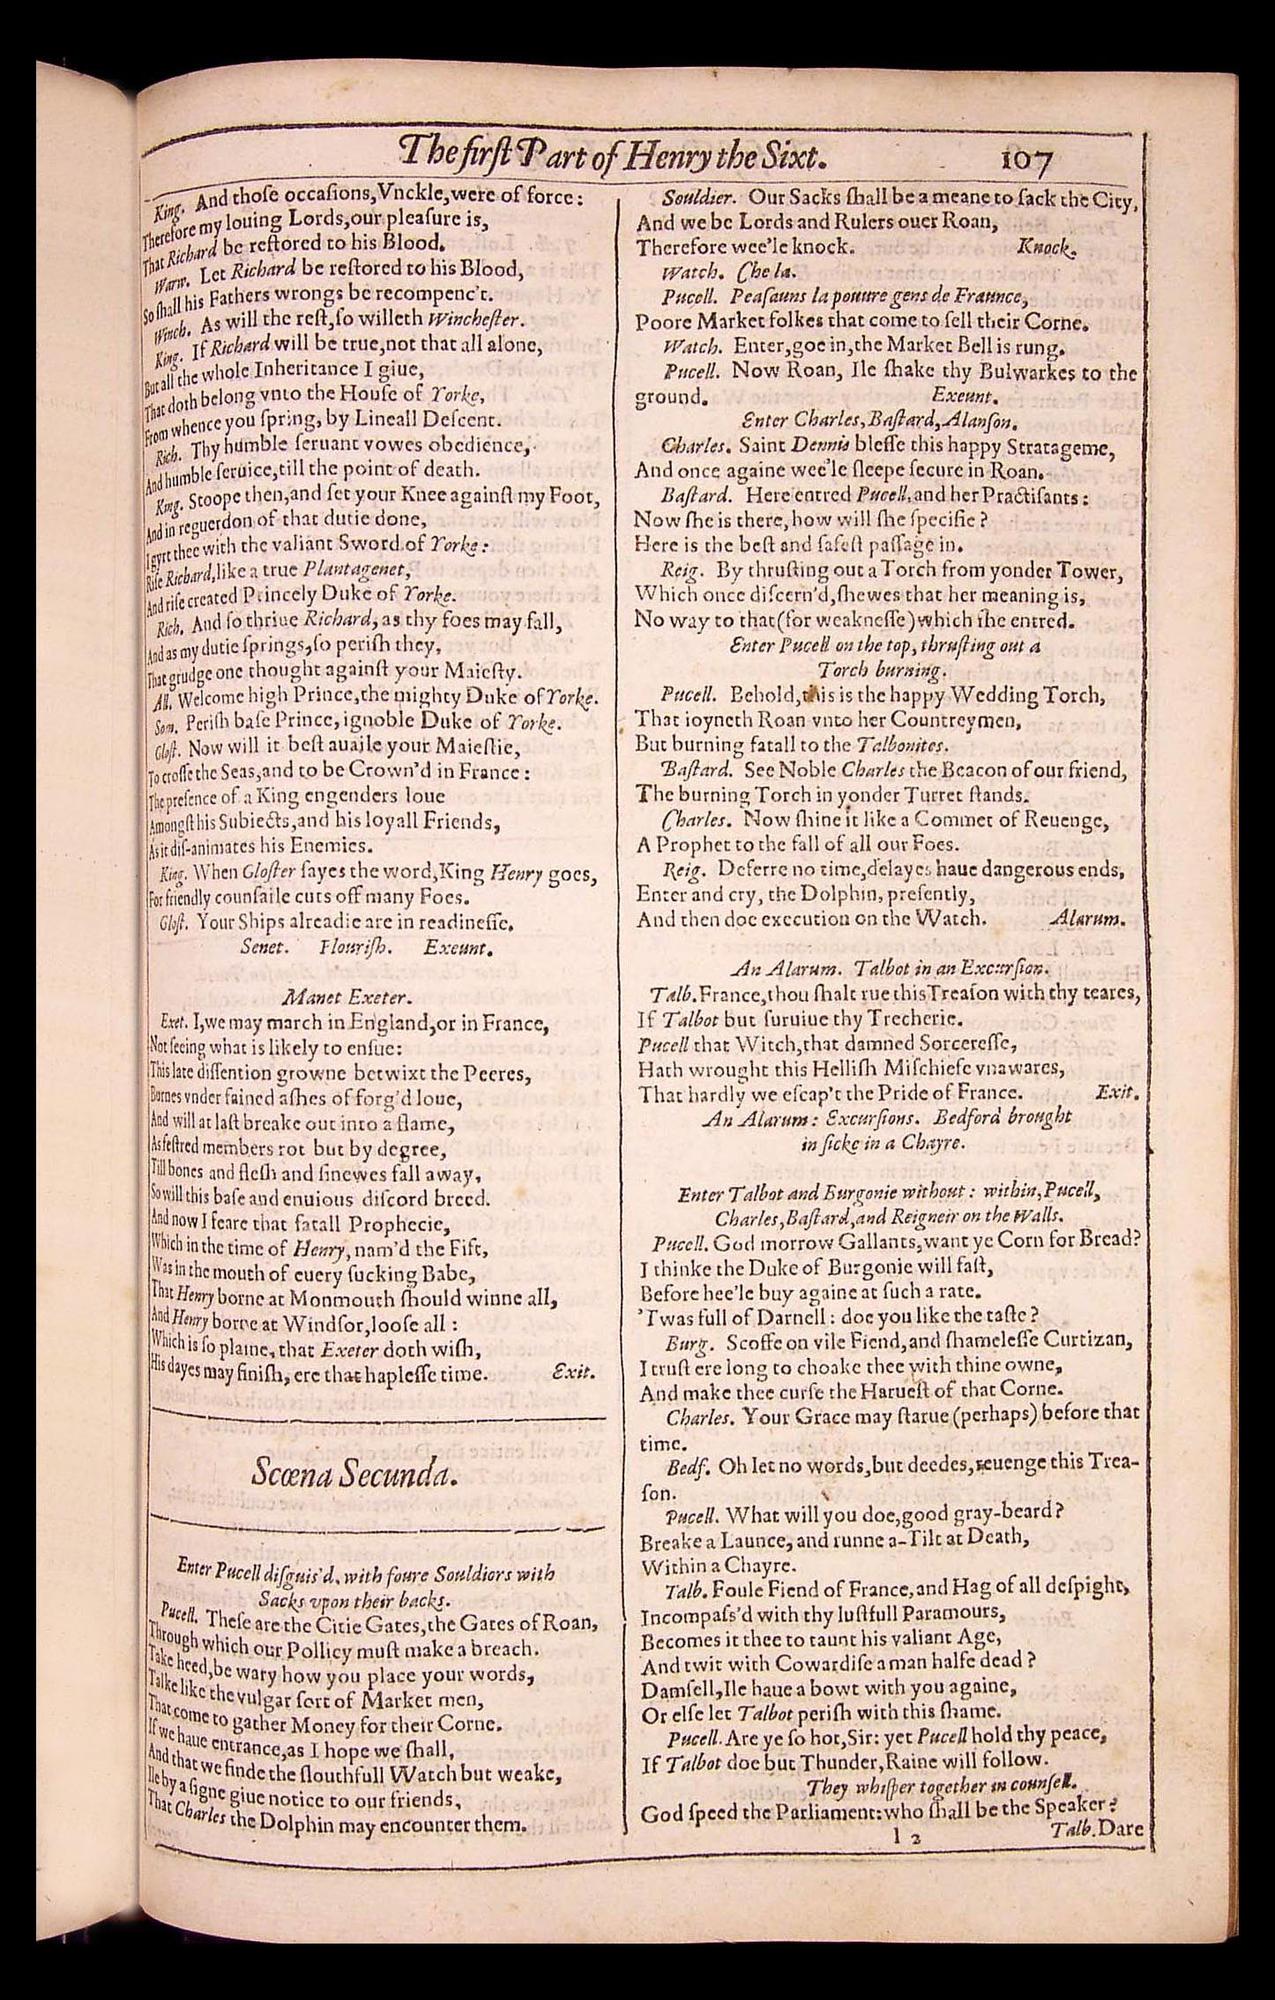 The firſt Part of Henry the Sixt. 107
King. And thoſe occaſions, Vnckle, were of force:
Therefore my louing Lords, our pleaſure is,
That Richard be reſtored to his Blood.
Warw. Let Richard be reſtored to his Blood,
So ſhall his Fathers wrongs be recompenc't.
Winch. As will the reſt, ſo willeth Wincheſter.
King. If Richard will be true, not that all alone,
But all the whole Inheritance I giue,
That doth belong vnto the Houſe of Yorke,
From whence you ſpring, by Lineall Deſcent.
Rich. Thy humble ſeruant vowes obedience,
And humble ſeruice, till the point of death.
King. Stoope then, and ſet your Knee againſt my Foot,
And in reguerdon of that dutie done,
I gyrt thee with the valiant Sword of Yorke:
Riſe Richard, like a true Plantagenet,
And riſe created Princely Duke of Yorke.
Rich. And ſo thriue Richard, as thy foes may fall,
And as my dutie ſprings, ſo periſh they,
That grudge one thought againſt your Maieſty.
All. Welcome high Prince, the mighty Duke of Yorke.
Som. Periſh baſe Prince, ignoble Duke of Yorke.
Gloſt. Now will it beſt auaile your Maieſtie,
To croſſe the Seas, and to be Crown'd in France:
The preſence of a King engenders loue
Amongſt his Subiects, and his loyall Friends,
As it diſ-animates his Enemies.
King. When Gloſter ſayes the word, King Henry goes,
For friendly counſaile cuts off many Foes.
Gloſt. Your Ships alreadie are in readineſſe.
Senet. Flouriſh. Exeunt.
Manet Exeter.
Exet. I, we may march in England, or in France,
Not ſeeing what is likely to enſue:
This late diſſention growne betwixt the Peeres,
Burnes vnder fained aſhes of forg'd loue,
And will at laſt breake out into a flame,
As feſtred members rot but by degree,
Till bones and fleſh and ſinewes fall away,
So will this baſe and enuious diſcord breed.
And now I feare that fatall Prophecie,
Which in the time of Henry, nam'd the Fift,
Was in the mouth of euery ſucking Babe,
That Henry borne at Monmouth ſhould winne all,
And Henry borne at Windſor, looſe all:
Which is ſo plaine, that Exeter doth wiſh,
His dayes may finiſh, ere that hapleſſe time. Exit.
Scœna Secunda.
Enter Pucell diſguis'd, with foure Souldiors with
Sacks vpon their backs.
Pucell. Theſe are the Citie Gates, the Gates of Roan,
Through which our Pollicy muſt make a breach.
Take heed, be wary how you place your words,
Talke like the vulgar ſort of Market men,
That come to gather Money for their Corne.
If we haue entrance, as I hope we ſhall,
And that we finde the ſlouthfull Watch but weake,
Ile by a ſigne giue notice to our friends,
That Charles the Dolphin may encounter them.
Souldier. Our Sacks ſhall be a meane to ſack the City,
And we be Lords and Rulers ouer Roan,
Therefore wee'le knock. Knock.
Watch. Che la.
Pucell. Peaſauns la pouure gens de Fraunce,
Poore Market folkes that come to ſell their Corne.
Watch. Enter, goe in, the Market Bell is rung.
Pucell. Now Roan, Ile ſhake thy Bulwarkes to the
ground. Exeunt.
Enter Charles, Baſtard, Alanſon.
Charles. Saint Dennis bleſſe this happy Stratageme,
And once againe wee'le ſleepe ſecure in Roan.
Baſtard. Here entred Pucell, and her Practiſants:
Now ſhe is there, how will ſhe ſpecifie?
Here is the beſt and ſafeſt paſſage in.
Reig. By thruſting out a Torch from yonder Tower,
Which once diſcern'd, ſhewes that her meaning is,
No way to that (for weakneſſe) which ſhe entred.
Enter Pucell on the top, thruſting out a
Torch burning.
Pucell. Behold, this is the happy Wedding Torch,
That ioyneth Roan vnto her Countreymen,
But burning fatall to the Talbonites.
Baſtard. See Noble Charles the Beacon of our friend,
The burning Torch in yonder Turret ſtands.
Charles. Now ſhine it like a Commet of Reuenge,
A Prophet to the fall of all our Foes.
Reig. Deferre no time, delayes haue dangerous ends,
Enter and cry, the Dolphin, preſently,
And then doe execution on the Watch. Alarum.
An Alarum. Talbot in an Excurſion.
Talb. France, thou ſhalt rue this Treaſon with thy teares,
If Talbot but ſuruiue thy Trecherie.
Pucell that Witch, that damned Sorcereſſe,
Hath wrought this Helliſh Miſchiefe vnawares,
That hardly we eſcap't the Pride of France. Exit.
An Alarum: Excurſions. Bedford brought
in ſicke in a Chayre.
Enter Talbot and Burgonie without: within, Pucell,
Charles, Baſtard, and Reigneir on the Walls.
Pucell. God morrow Gallants, want ye Corn for Bread?
I thinke the Duke of Burgonie will faſt,
Before hee'le buy againe at ſuch a rate.
'Twas full of Darnell: doe you like the taſte?
Burg. Scoffe on vile Fiend, and ſhameleſſe Curtizan,
I truſt ere long to choake thee with thine owne,
And make thee curſe the Harueſt of that Corne.
Charles. Your Grace may ſtarue (perhaps) before that
time.
Bedf. Oh let no words, but deedes, reuenge this Trea-
ſon.
Pucell. What will you doe, good gray-beard?
Breake a Launce, and runne a-Tilt at Death,
Within a Chayre.
Talb. Foule Fiend of France, and Hag of all deſpight,
Incompaſs'd with thy luſtfull Paramours,
Becomes it thee to taunt his valiant Age,
And twit with Cowardiſe a man halfe dead?
Damſell, Ile haue a bowt with you againe,
Or elſe let Talbot periſh with this ſhame.
Pucell. Are ye ſo hot, Sir: yet Pucell hold thy peace,
If Talbot doe but Thunder, Raine will follow.
They whiſper together in counſell.
God ſpeed the Parliament: who ſhall be the Speaker?
l 2 Talb. Dare